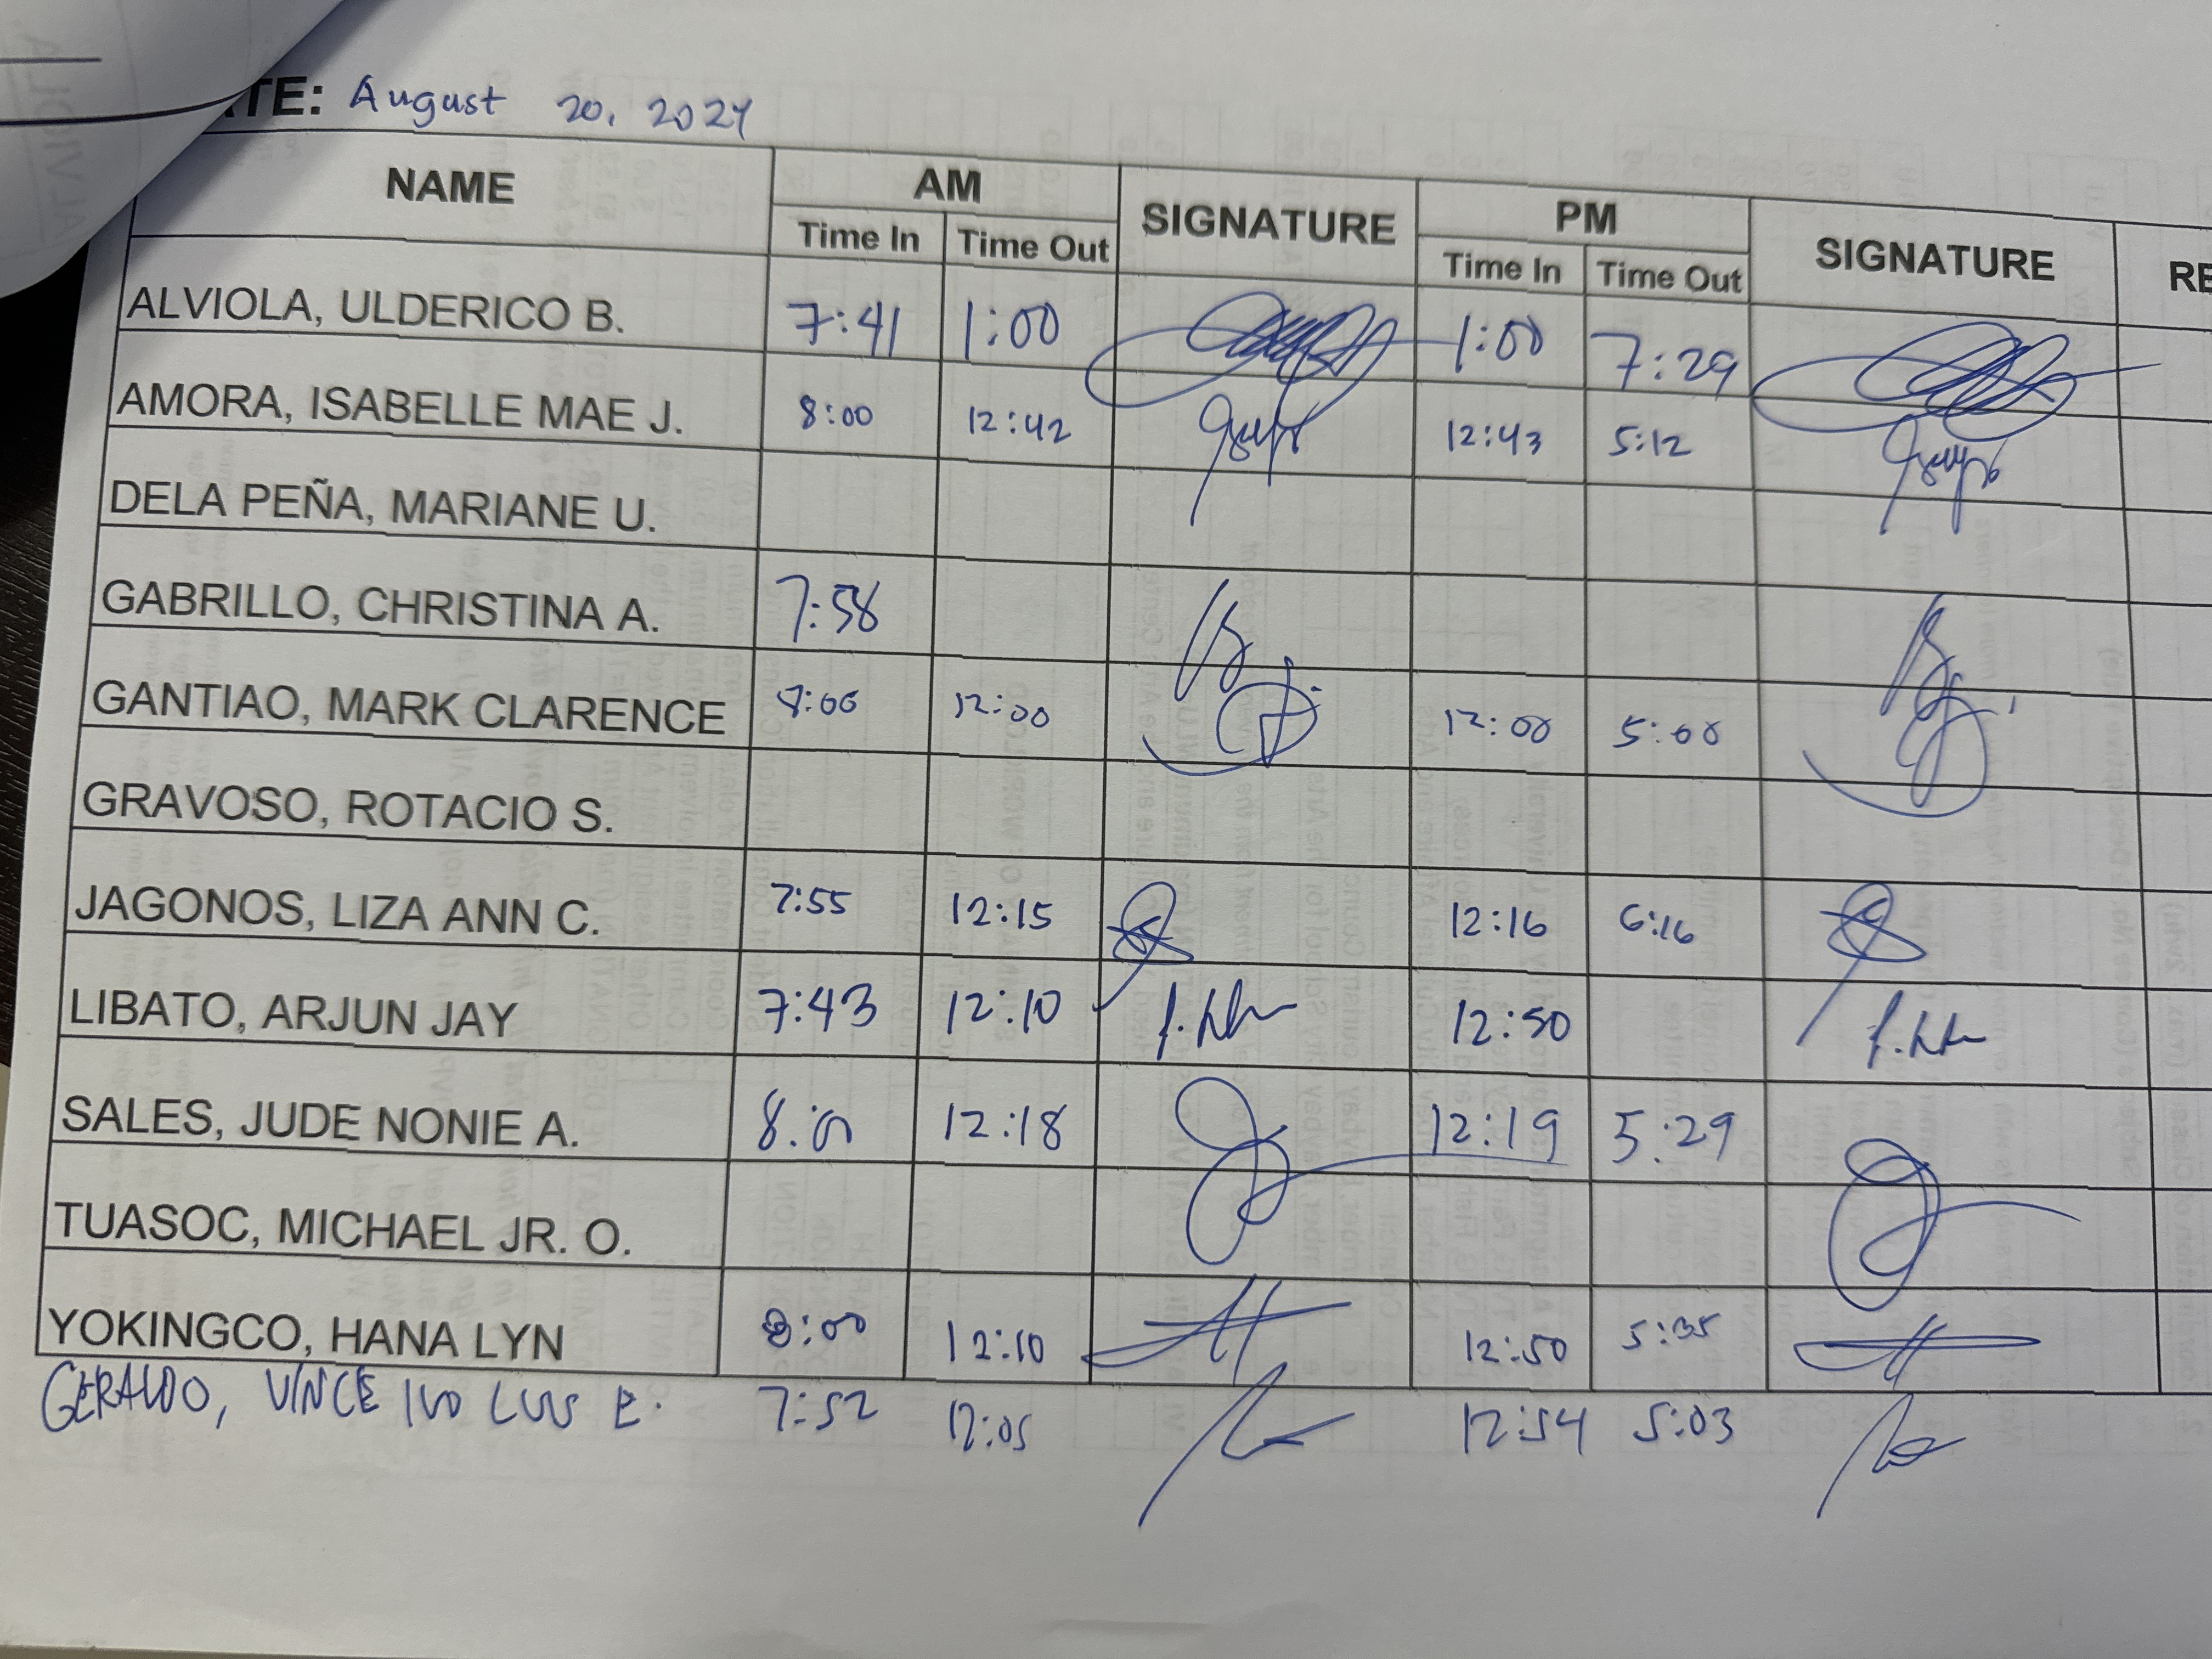 TE: August 20, 2024
NAME AM SIGNATURE PM SIGNATURE RE
Time In Time Out Time In Time Out
ALVIOLA, ULDERICO B. 7:41 1:00 1:00 7:29
AMORA, ISABELLE MAE J. 8:00 12:42 12:43 5:12
DELA PEÑA, MARIANE U.
GABRILLO, CHRISTINA A. 7:58
GANTIAO, MARK CLARENCE 8:00 12:00 12:00 5:00
GRAVOSO, ROTACIO S.
JAGONOS, LIZA ANN C. 7:55 12:15 12:16 6:16
LIBATO, ARJUN JAY 7:43 12:10 12:50
SALES, JUDE NONIE A. 12:18 12:19 5:29
TUASOC, MICHAEL JR. O.
YOKINGCO, HANA LYN 8:00 12:10 12:50 5:35
GERALDO, VINCE IVO LUIS E. 7:52 12:05 12:54 5:03